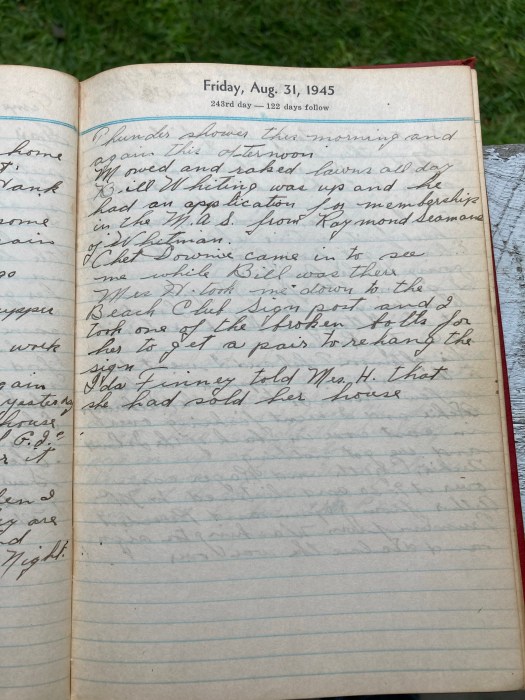 Friday, Aug. 31, 1945
243rd day — 122 days follow
Thunder shower this morning and
again this afternoon.
Mowed and raked lawns all day
Bill Whiting was up and he
had an application for membership
in the M.A.S. from Raymond Seamans
of Whitman.
Chet Downie came in to see
me while Bill was there
Mrs H. took me down to the
Beach Club Sign post and I
took one of the broken bolts for
her to get a pair to rehang the
sign
Ida Finney told Mrs. H. that
she had sold her house
home
some
work
yesterday
house
G.I."
it
I
are
Night.